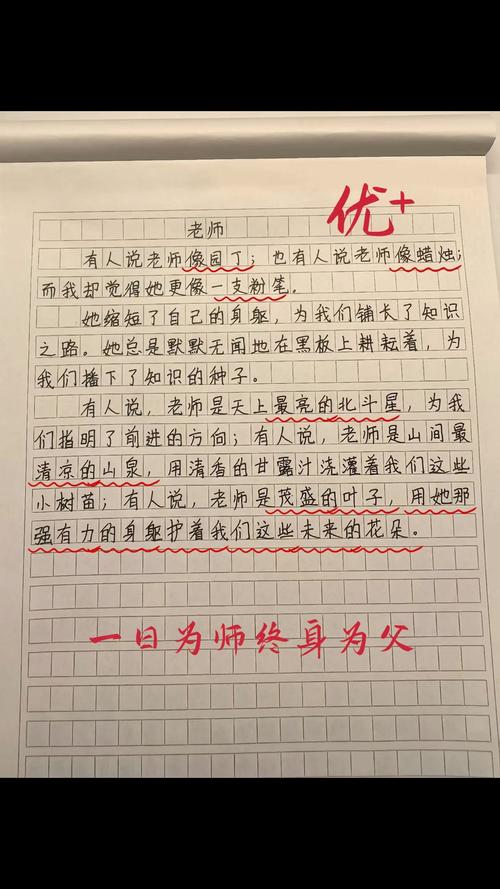 优+
老师
有人说老师像园丁；也有人说老师像蜡烛；
而我却觉得她更像一支粉笔。
她缩短了自己的身躯，为我们铺长了知识
之路。她总是默默无闻地在黑板上耕耘着，为
我们播下了知识的种子。
有人说，老师是天上最亮的北斗星，为我
们指明了前进的方向；有人说，老师是山间最
清凉的山泉，用清香的甘露汁浇灌着我们这些
小树苗；有人说，老师是茂盛的叶子，用她那
强有力的身躯护着我们这些未来的花朵。
一日为师终身为父